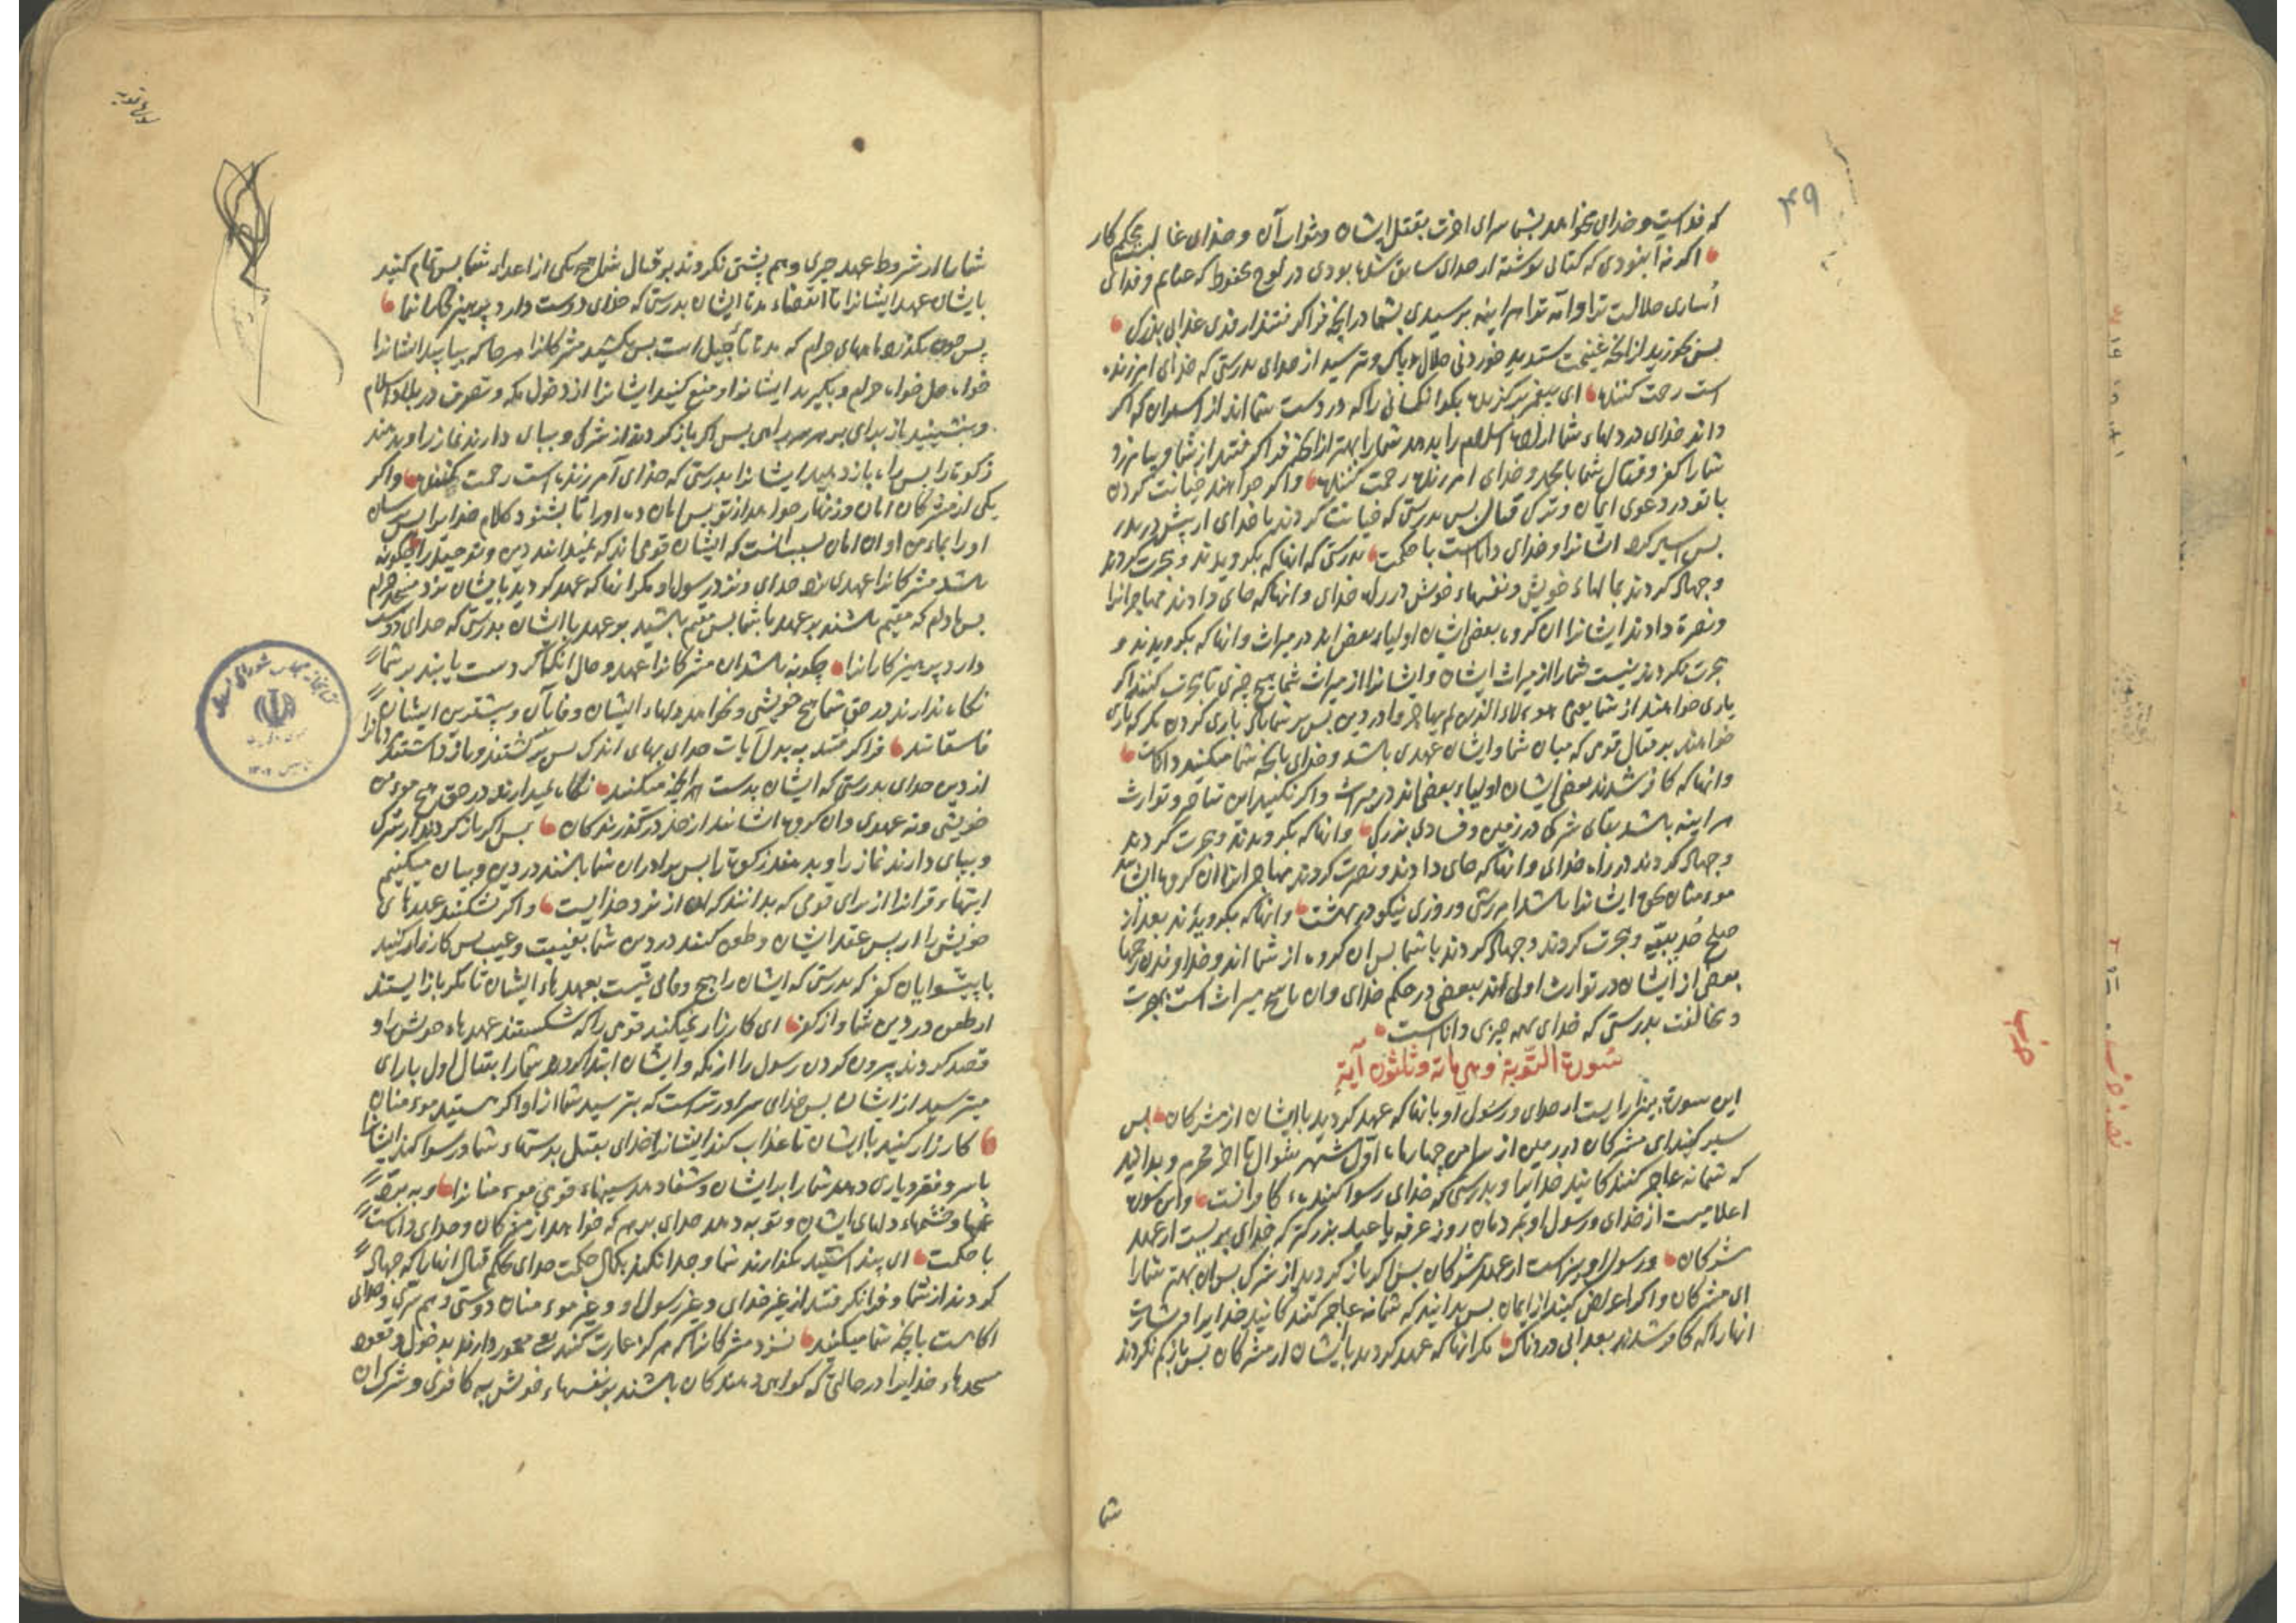 ۴۹
که فداست و خدای میخواهد بشما سرای اخرت بقتل ایشان و ثواب آن و خدای غالب محکم کار
اکر نه آن بودی که کتابی نوشته از خدای سابق شده بودی در لوح محفوظ که غنایم و فدای
اُساری حلالست ترا و امت ترا هراینه برسیدی بشما در آنچه فراکرفتند از فدی عذابی بزرک
پس بخورید از آنچه غنیمت ستدید خوردنی حلال و پاک و بترسید از خدای بدرستی که خدای امرزنده
است رحمت کننده ای پیغمبر برکزیده بکو انکسانی را که در دست شما اند از اسیران که اکر
داند خدای در دلهاء شما اسلام را بدهد شما را بهتر از آنچه فراکرفتند از شما و بیامرزد
شما را کفر و قتال شما با محمد و خدای امرزنده رحمت کننده و اکر خواهند خیانت کردن
با تو در دعوی ایمان و ترک قتال پس بدرستی که خیانت کردند با خدای از پیش در بدر
پس اسیر کرد ایشانرا و خدای داناست با حکمت بدرستی که انها که بکرویدند و هجرت کردند
و جهاد کردند بمالهاء خویش و نفسهاء خویش در راه خدای و انها که جای دادند مهاجرانرا
و نصرة دادند ایشانرا ان کروه بعضی ایشان اولیاء بعض اند در میراث و انها که بکرویدند و
هجرت نکردند نیست شما را از میراث ایشان و ایشانرا از میراث شما هیچ چیزی تا هجرت کنند و اکر
یاری خواهند از شما یعنی هوءلاء الذین لم یهاجروا در دین پس بر شماست یاری کردن مکر که یاری
خواهند بر قتال قومی که میان شما و ایشان عهدی باشد و خدای بانچه شما میکنید داناست
و انها که کافر شدند بعضی ایشان اولیاء بعضی اند در میراث و اکر نکنید این تناصر و توارث
هراینه باشد بقای شرک در زمین و فسادی بزرک و انها که بکرویدند و هجرت کردند
و جهاد کردند در راه خدای و انها که جای دادند و نصرت کردند مهاجرانرا ان کروه ایشانند
موءمنان بحق ایشانرا باشد امرزش و روزی نیکو در بهشت و انها که بکرویدند بعد از
صلح حُدیبیّه و هجرت کردند و جهاد کردند با شما پس ان کروه از شما اند و خداوندان رحمها
بعضی از ایشان در توارث اولی اند ببعضی در حکم خدای و ان ناسخ میراث است بهجرت
و مخالفت بدرستی که خدای بهمه چیزی داناست
سُورة التّوبة و هی مائة و ثلثون آیة
این سورة بیزاریست از خدای و رسول او بانها که عهد کردید با ایشان از مشرکان پس
سیر کنید ای مشرکان در زمین از سر امن چهار ماه اوّل شهر شوال تا اخر محرم و بدانید
که شما نه عاجز کنندکانید خدایرا و بدرستی که خدای رسوا کننده کافرانست و این سورة
اعلامیست از خدای و رسول او بمردمان روز عرفه یا عید بزرکتر که خدای بریست از عهد
مشرکان و رسول او بریست از عهد مشرکان پس اکر باز کردید از شرک پس ان بهتر شما را
ای مشرکان و اکر اعراض کنید از ایمان پس بدانید که شما نه عاجز کنندکانید خدایرا و بشارت ده
انها را که کافر شدند بعذابی دردناک مکر انها که عهد کردید با ایشان از مشرکان پس باز کم نکردند
شما
شما را از شروط عهد چیزی و هم پشتی نکردند بر قتال شما هیچ یکی از اعداء شما پس تمام کنید
بایشان عهد ایشانرا تا انقضاء مدة ایشان بدرستی که خدای دوست دارد پرهیزکارانرا
پس چون بکذرد ماههای حرام که مدة تأجیل است پس بکشید مشرکانرا هرجا که بیابید ایشانرا
خواه حل خواه حرام و بکیرید ایشانرا و منع کنید ایشانرا از دخول مکه و تصرف در بلاد اسلام
و بنشینید از برای بر هر راهی پس اکر باز کردند از شرک و بپای دارند نماز را و بدهند
زکوة را پس راه باز دهید ایشانرا بدرستی که خدای آمرزنده است رحمت کننده و اکر
یکی از مشرکان امان و زنهار خواهد از تو پس امان ده او را تا بشنود کلام خدایرا پس برسان
او را بماءمن او ان امان بسبب انست که ایشان قومی اند که نمیدانند دین و توحید را چکونه
باشد مشرکانرا عهدی نزد خدای و نزد رسول او مکر انها که عهد کردید با ایشان نزد مسجد حرام
پس مادام که مقیم باشند بر عهد با شما پس مقیم باشید بر عهد با ایشان بدرستی که خدای دوست
دارد پرهیزکارانرا چکونه باشد ان مشرکانرا عهد و حال انکه اکر دست یابند بر شما
نکاه ندارند در حق شما هیچ خویشی و نه عهد بدلهاء ایشان و فا آن و بیشترین ایشان
فاسقانند فراکرفتند به بدل آیات خدای بهای اندک پس برکشتند و باز داشتند
از دین خدای بدرستی که ایشان بدست انچه میکنند نکاه نمیدارند در حق هیچ موءمن
خویشی و نه عهدی و ان کروه ایشانند از حد درکذرندکان پس اکر باز کردند از شرک
و بپای دارند نماز را و بدهند زکوة را پس برادران شما باشند در دین و بیان میکنیم
ایتهاء قرانرا از برای قومی که بدانند که ان از نزد خدایست و اکر بشکنند عهدهای
خویش را از پس عقد ایشان و طعن کنند در دین شما بغیبت و عیب پس کارزار کنید
با پیشوایان کفر که بدرستی که ایشان را هیچ وفای نیست بعهدهاء ایشان تا مکر باز ایستند
از طعن در دین شما و از کفر ای کارزار نمیکنید قومی را که شکستند عهدهاء خویش را و
قصد کردند بیرون کردن رسول را از مکه و ایشان ابتدا کردند شما را بقتال اول بار ای
میترسید از ایشان پس خدای سزاورترست که بترسید شما از او اکر هستید موءمنان
کارزار کنید با ایشان تا عذاب کند ایشانرا خدای بقتل بدستهاء شما و رسوا کند ایشانرا
باسر و فقر و یاری دهد شما را بر ایشان و شفا دهد سینهاء قومی موءمنانرا و به برد
غمها و خشمهاء دلهای ایشان و توبه دهد خدای بر هر که خواهد از مشرکان و خدای داناست
با حکمت ای پنداشتید بکذارند شما و جدا نکند بکمال حکمت خدای بحکم قتال انها را که جهاد
کردند از شما و فرا نکرفتند از غیر خدای و غیر رسول او و غیر موءمنان دوستی و هم سرّی و خدای
اکاهست بانچه شما میکنید نسزد مشرکانرا که هرکز عمارت کنند و معمور دارند بدخول و قعود
مسجدهاء خدایرا در حالتی که کواهی دهندکان باشند بر نفسهاء خویش به کافری و مشرکی ان